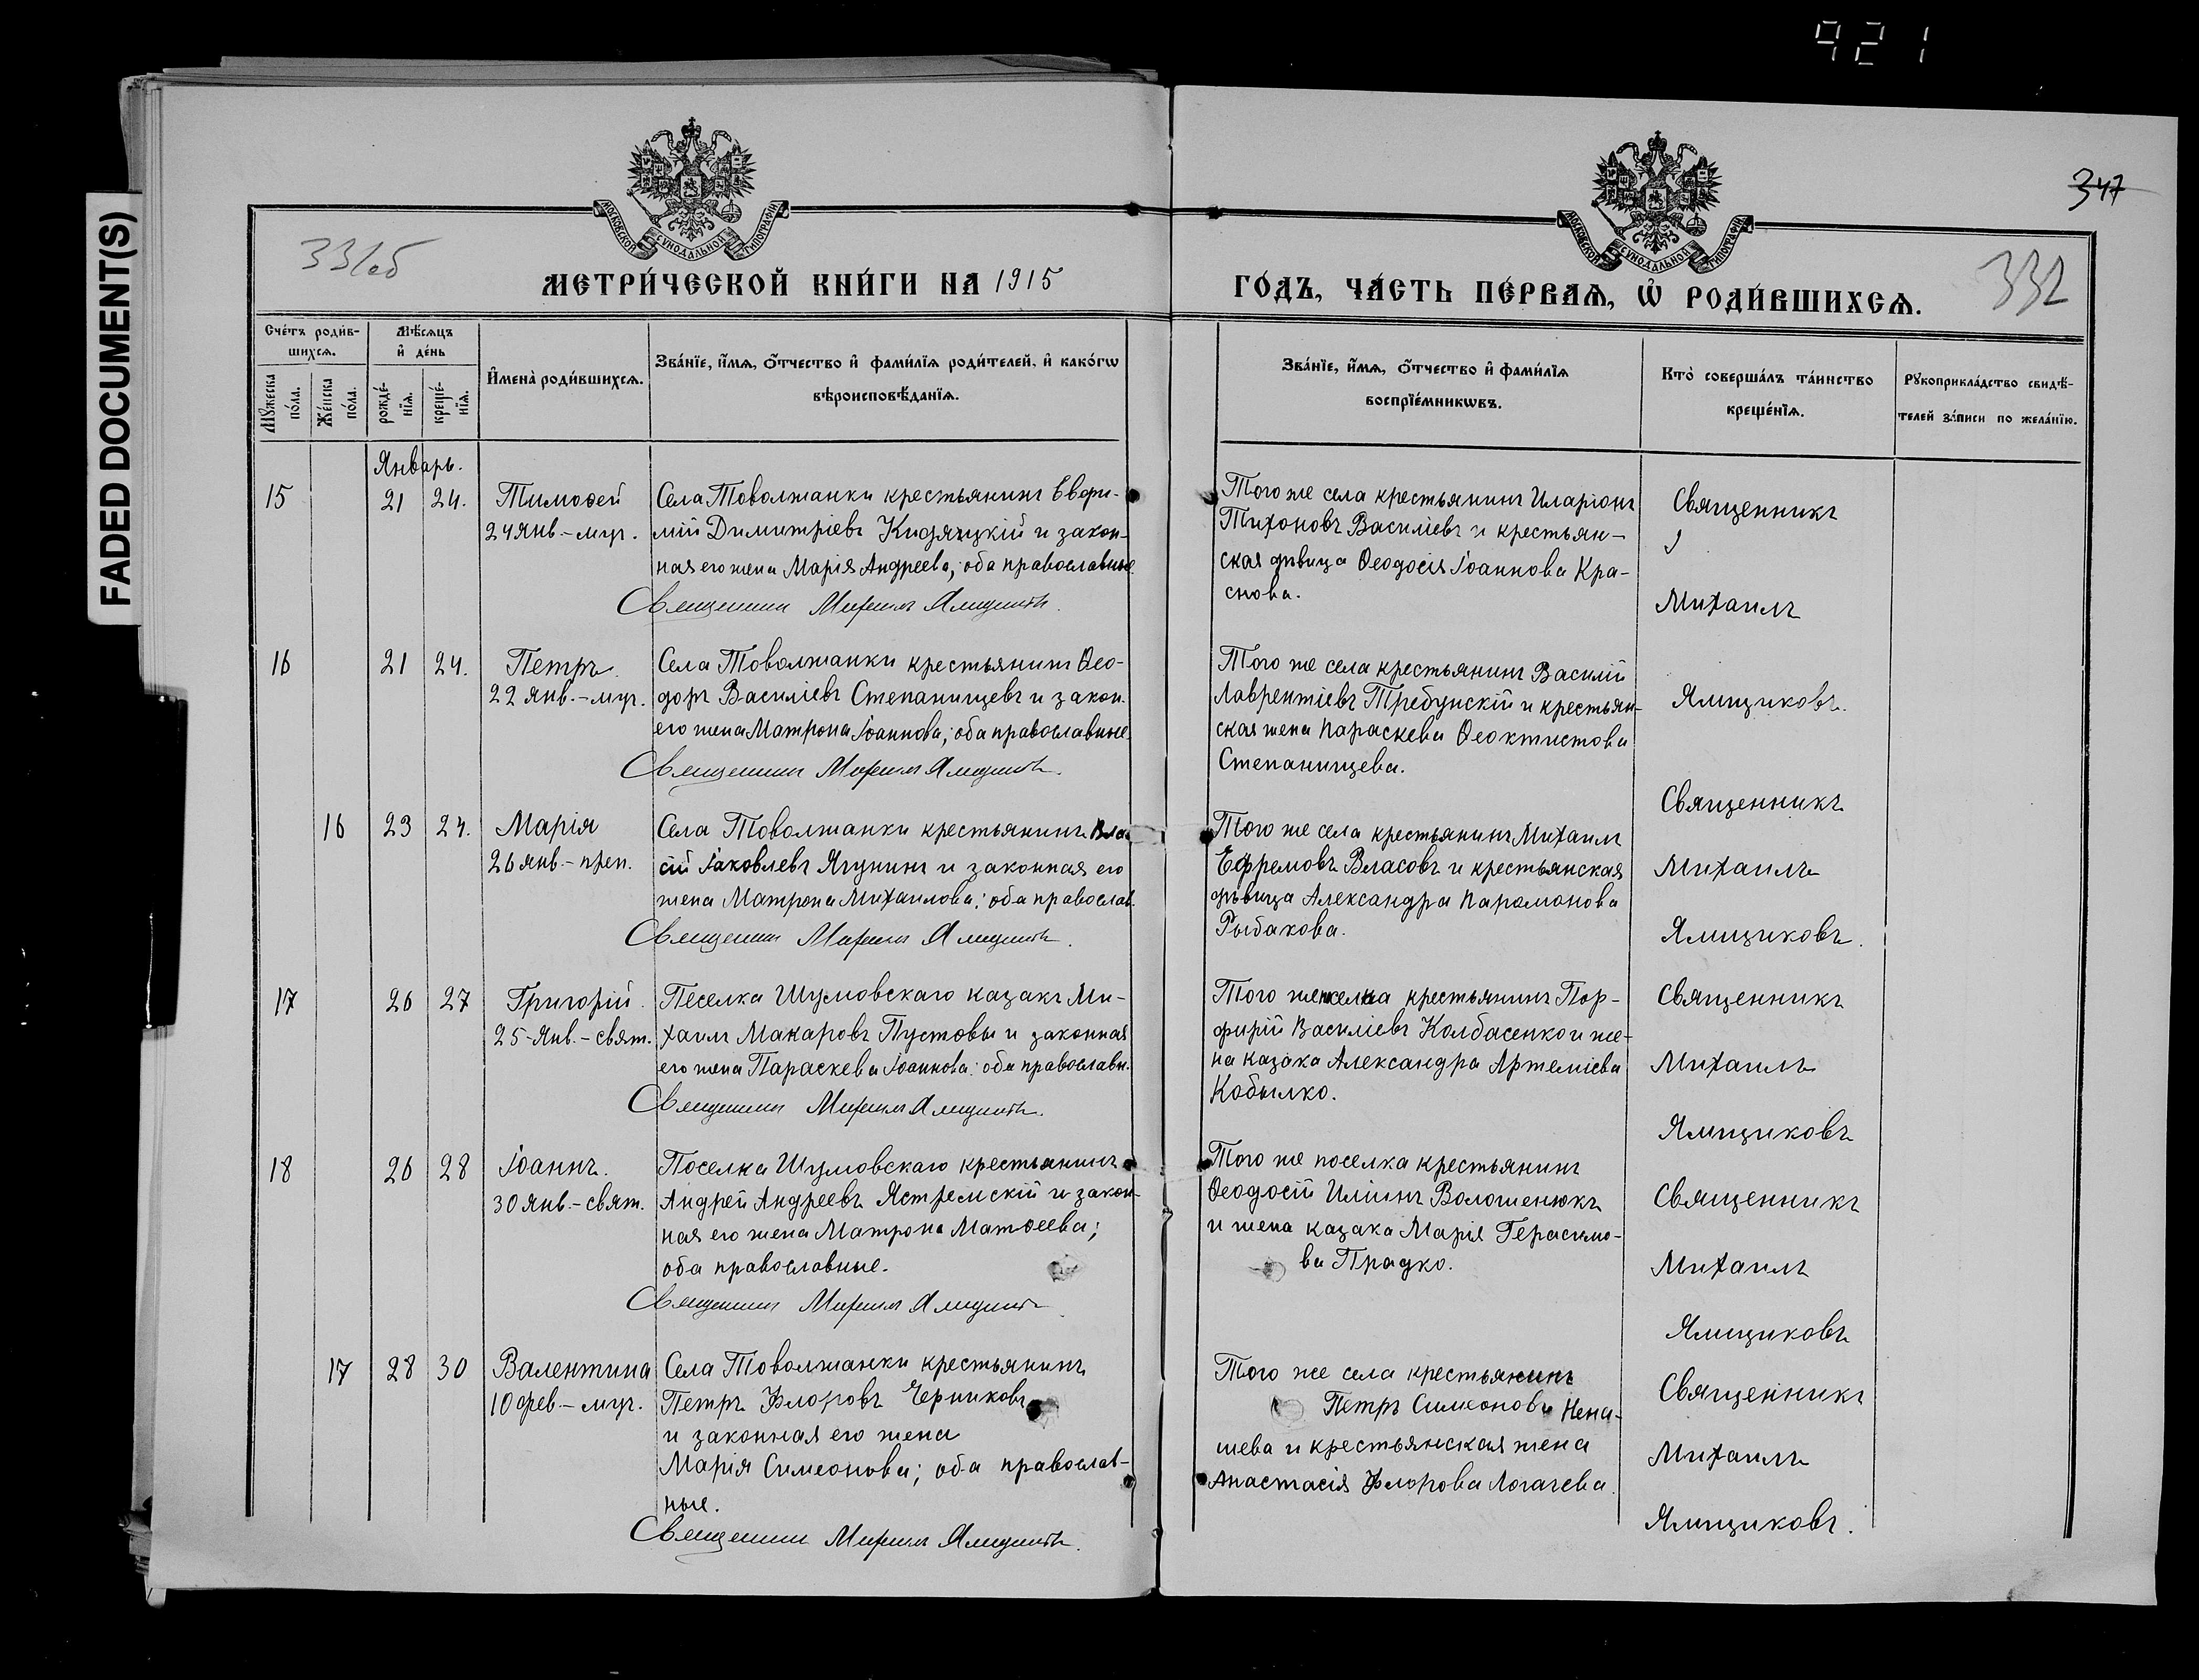 921
FADED DOCUMENT(S)
347
331об
332
МОСКОВСКОЙ СѴНОДАЛЬНОЙ ТИПОГРАФІИ
МОСКОВСКОЙ СѴНОДАЛЬНОЙ ТИПОГРАФІИ
МЕТРИ́ЧЕСКОЙ КНИ́ГИ НА 1915
ГО́ДЪ, ЧА́СТЬ ПЕ́РВАѦ, Ѽ РОДИ́ВШИХСѦ.
Сче́тъ роди́в-
шихсѧ.
Мꙋжеска по́ла.
Же́нска по́ла.
Мѣ́сѧцъ
и҆ де́нь
рожде́-
нїѧ.
креще́-
нїѧ.
И҆мена̀ роди́вшихсѧ.
Зва́нїе, и҆́мѧ, ѻ҆́тчество и҆ фами́лїѧ роди́телей, и҆ како́гѡ
вѣроисповѣ́данїѧ.
Зва́нїе, и҆́мѧ, ѻ҆́тчество и҆ фами́лїѧ
воспрїе́мникѡвъ.
Кто̀ соверша́лъ та́инство
креще́нїѧ.
Рꙋкоприкла́дство свидѣ́-
телей за́писи по жела́нїю.
Январь.
15 21 24.
Тимоѳей
24 янв.-муч.
Села Товолжанки крестьянинъ Евфи-
мій Димитріевъ Кидяцкій и закон-
ная его жена Марія Андреева; оба православные.
Священникъ Михаилъ Ямщиковъ.
Того же села крестьянинъ Иларіонъ
Тихоновъ Василіевъ и крестьян-
ская дѣвица Ѳеодосія Іоаннова Кра-
снова.
Священникъ
Михаилъ
Ямщиковъ.
16 21 24.
Петръ.
22 янв.-муч.
Села Товолжанки крестьянинъ Ѳео-
доръ Василіевъ Степанищевъ и закон.
его жена Матрона Іоаннова; оба православные.
Священникъ Михаилъ Ямщиковъ.
Того же села крестьянинъ Василій
Лаврентіевъ Требунскій и крестьян-
ская жена Параскева Ѳеоктистова
Степанищева.
Священникъ
Михаилъ
Ямщиковъ.
16 23 24.
Марія
26 янв.-преп.
Села Товолжанки крестьянинъ Вла
сій Іаковлевъ Ягунинъ и законная его
жена Матрона Михаилова; оба православ.
Священникъ Михаилъ Ямщиковъ.
Того же села крестьянинъ Михаилъ
Ефремовъ Власовъ и крестьянская
дѣвица Александра Парамонова
Рыбакова.
17 26 27
Григорій.
25-янв.-свят.
Песелка Шумовскаго казакъ Ми-
хаилъ Макаровъ Пустовы и законная
его жена Параскева Іоаннова: оба православн.
Священникъ Михаилъ Ямщиковъ.
Того же селка крестьянинъ Пор-
фирій Василіевъ Колбасенко и же-
на казака Александра Артеміева
Кобылко.
Священникъ
Михаилъ
Ямщиковъ
18 26 28
Іоаннъ.
30 янв.-свят.
Поселка Шумовскаго крестьянинъ
Андрей Андреевъ Ястремскій и закон-
ная его жена Матрона Матѳеева;
оба православные.
Священникъ Михаилъ Ямщиковъ.
Того же поселка крестьянинъ
Ѳеодосій Иліинъ Волошенюкъ
и жена казака Марія Герасимо-
ва Прадко.
Священникъ
Михаилъ
Ямщиковъ
17 28 30
Валентина
10 фев.-муч.
Села Товолжанки крестьянинъ
Петръ Флоровъ Черниковъ
и законная его жена
Марія Симеонова; оба православ-
ные.
Священникъ Михаилъ Ямщиковъ.
Того же села крестьянинъ
Петръ Симеоновъ Нена-
шева и крестьянская жена
Анастасія Флорова Логачева.
Священникъ
Михаилъ
Ямщиковъ.